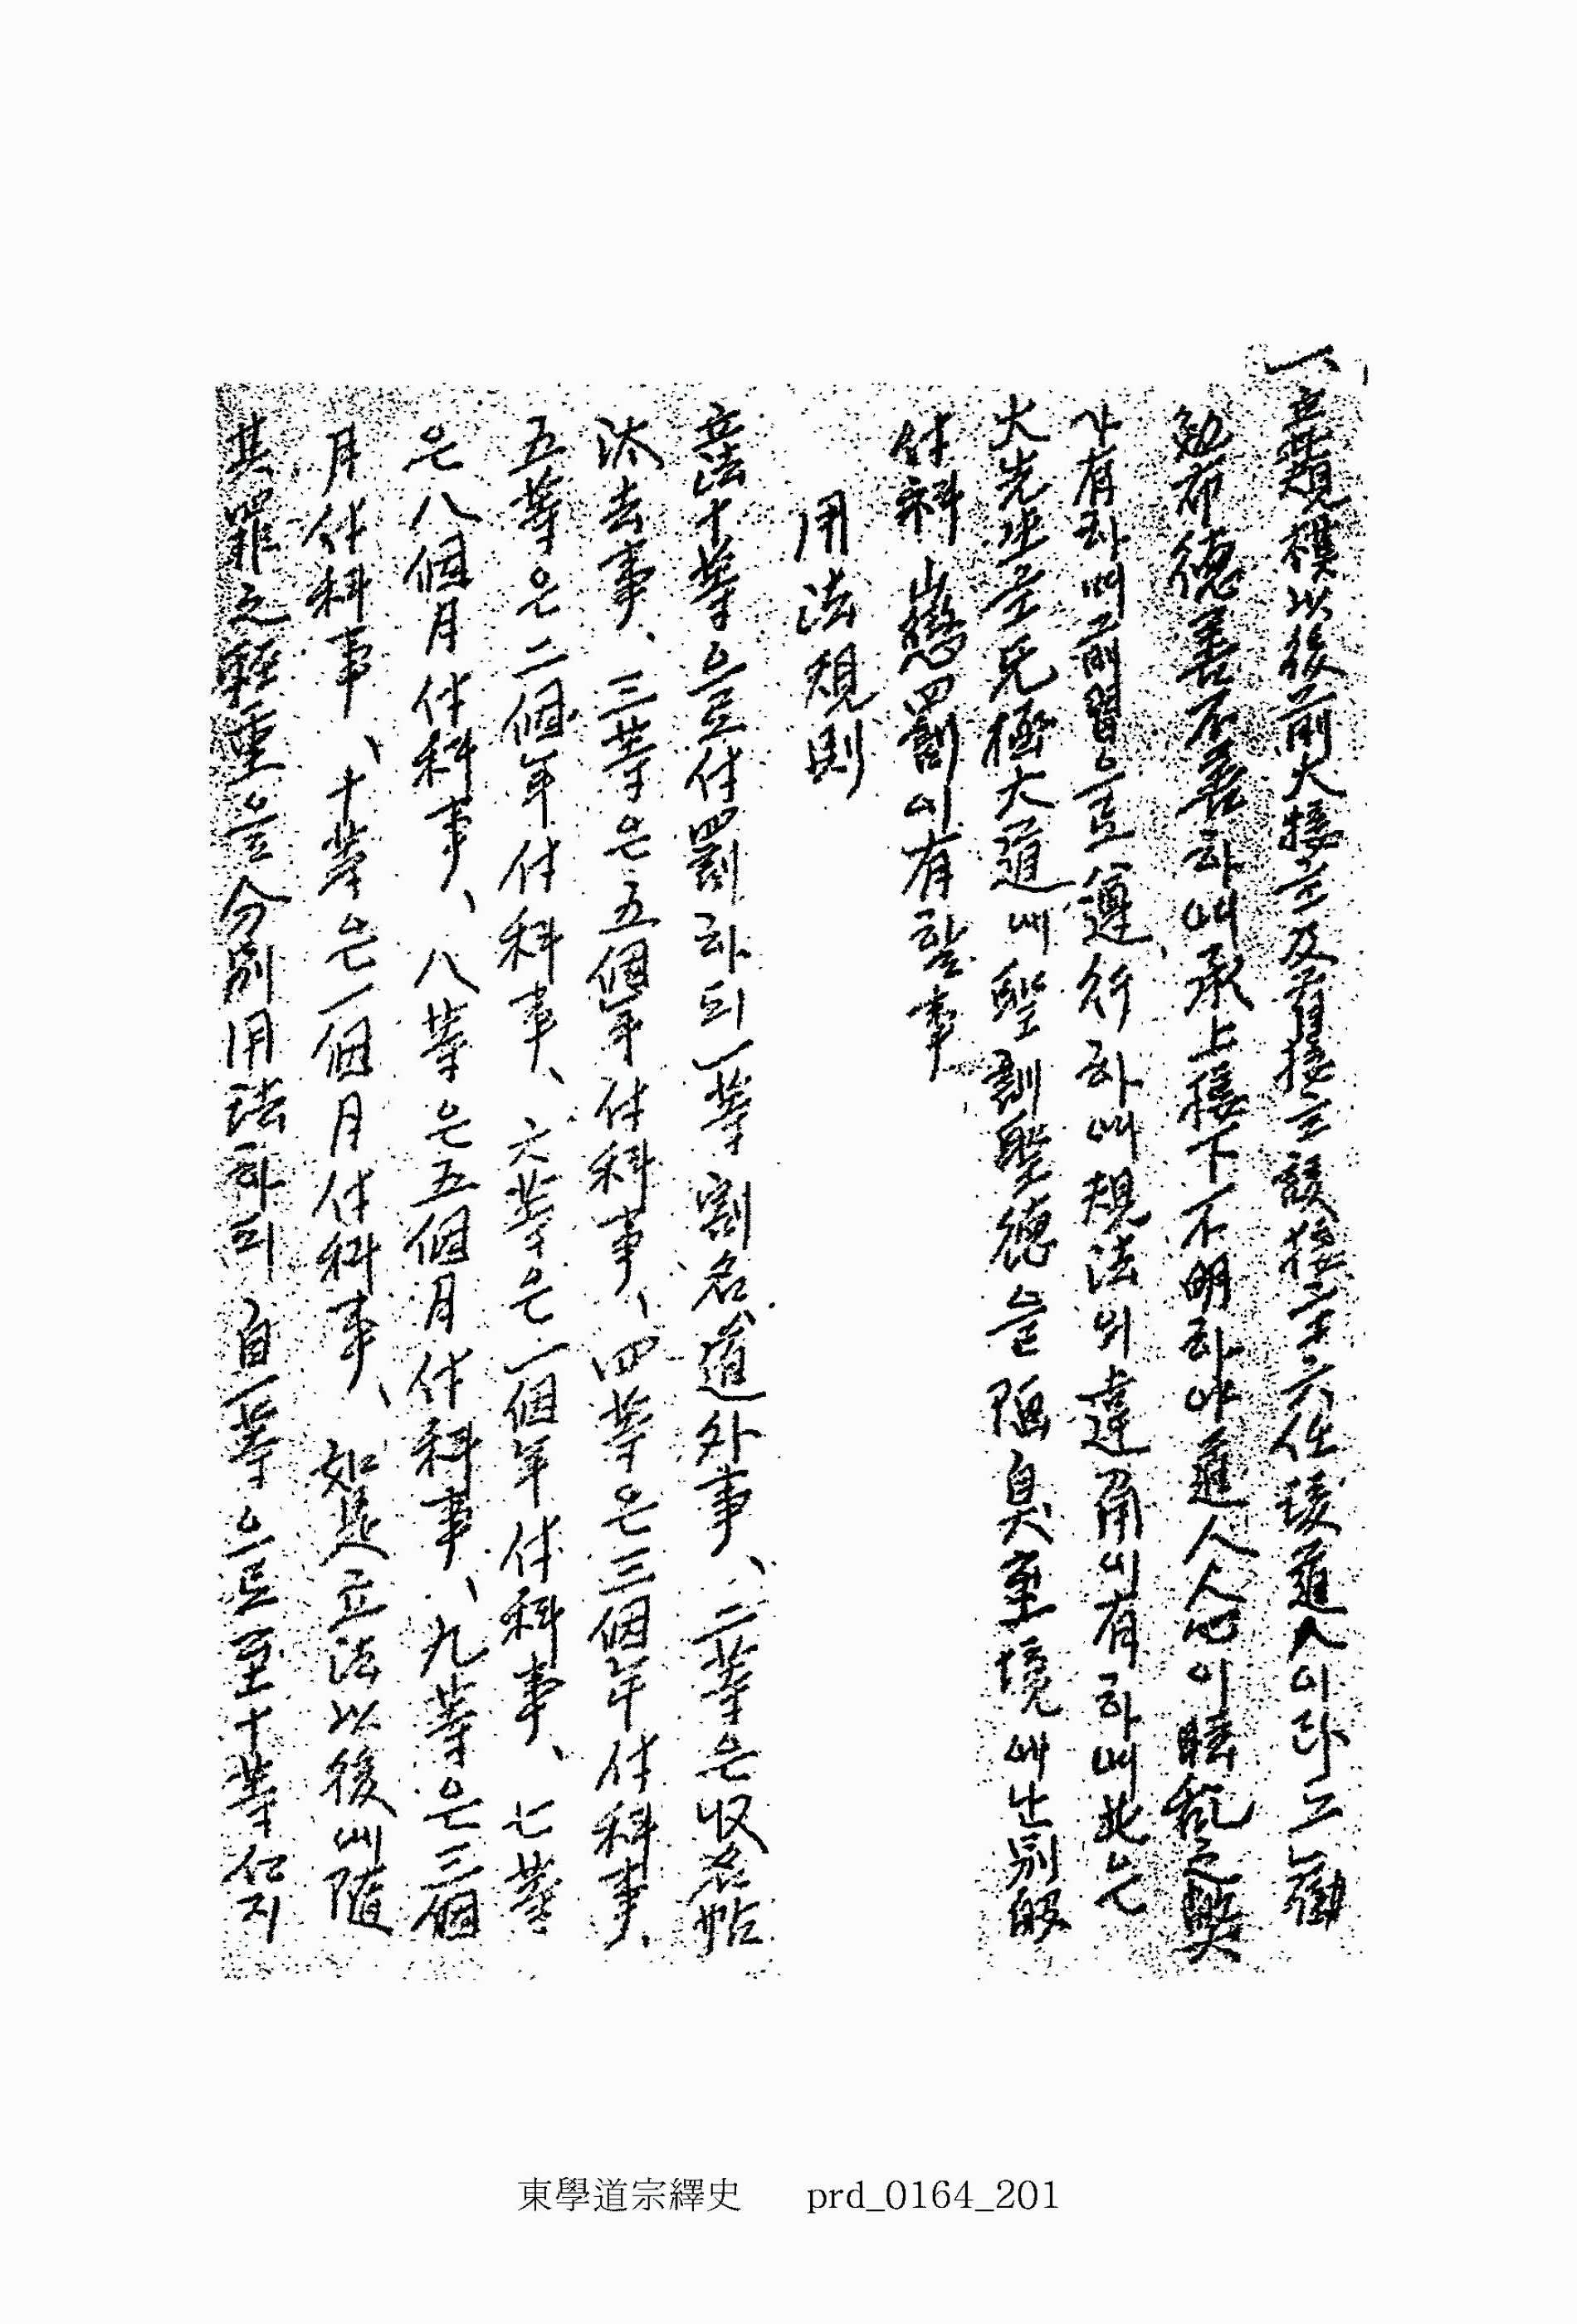 一, 立規模以後前大接主及首接主該接主六任該道人이라도勸
勉布德善不善하며承上接下不明하야道人人心이眩亂之弊
가有하며前習으로遵行하며規法의違角이有하며此는
大先生主無極大道에聖訓聖德을隱臭重境에止別般
付科懲罰이有할事
用法規則
立法十等으로付罰하되一等割名道外事、二等은收名帖
汰去事、三等은五個年付科事、四等은三個年付科事、
五等은二個年付科事、六等은一個年付科事、七等
은八個月付科事、八等은五個月付科事、九等은三個
月付科事、十等은一個月付科事、如是立法以後에隨
其罪之輕重을分別用法하되自一等으로至十等신지
東學道宗繹史 prd_0164_201